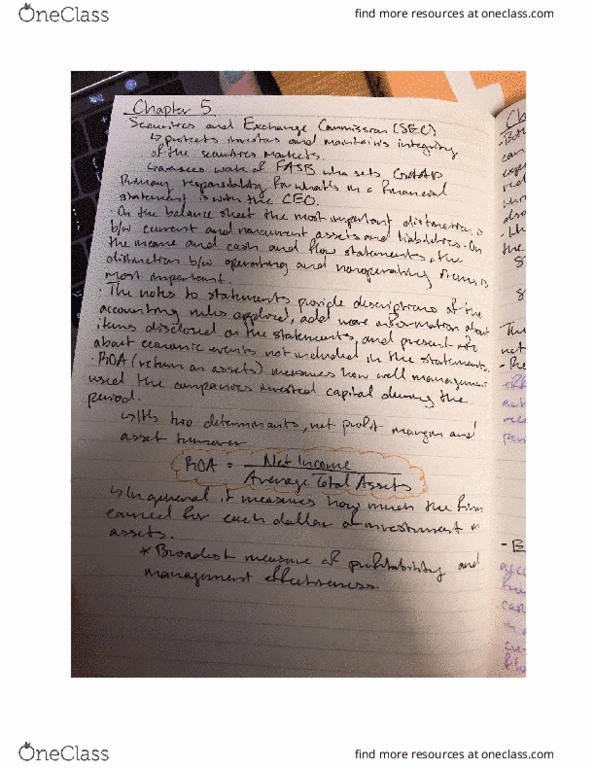 OneClass
find more resources at oneclass.com
Chapter 5
Securities and Exchange Commission (SEC)
↳ protects investors and maintains integrity
of the securities markets.
↳ oversees work of FASB who sets GAAP
Primary responsibility for what's in a financial
statement is with the CEO.
· On the balance sheet the most important distinction is
b/w current and noncurrent assets and liabilities. On
the income and cash and flow statements, the
distinction b/w operating and nonoperating items is
most important.
· The notes to statements provide descriptions of the
accounting rules applied, add more information about
items disclosed on the statements, and present info
about economic events not included in the statements.
· ROA (return on assets) measures how well management
used the companies invested capital during the
period.
↳ Its two determinants, net profit margin and
asset turnover
ROA = Net Income
Average Total Assets
↳ In general it measures how much the firm
earned for each dollar of investment in
assets.
* Broadest measure of profitability and
management effectiveness.
OneClass
find more resources at oneclass.com